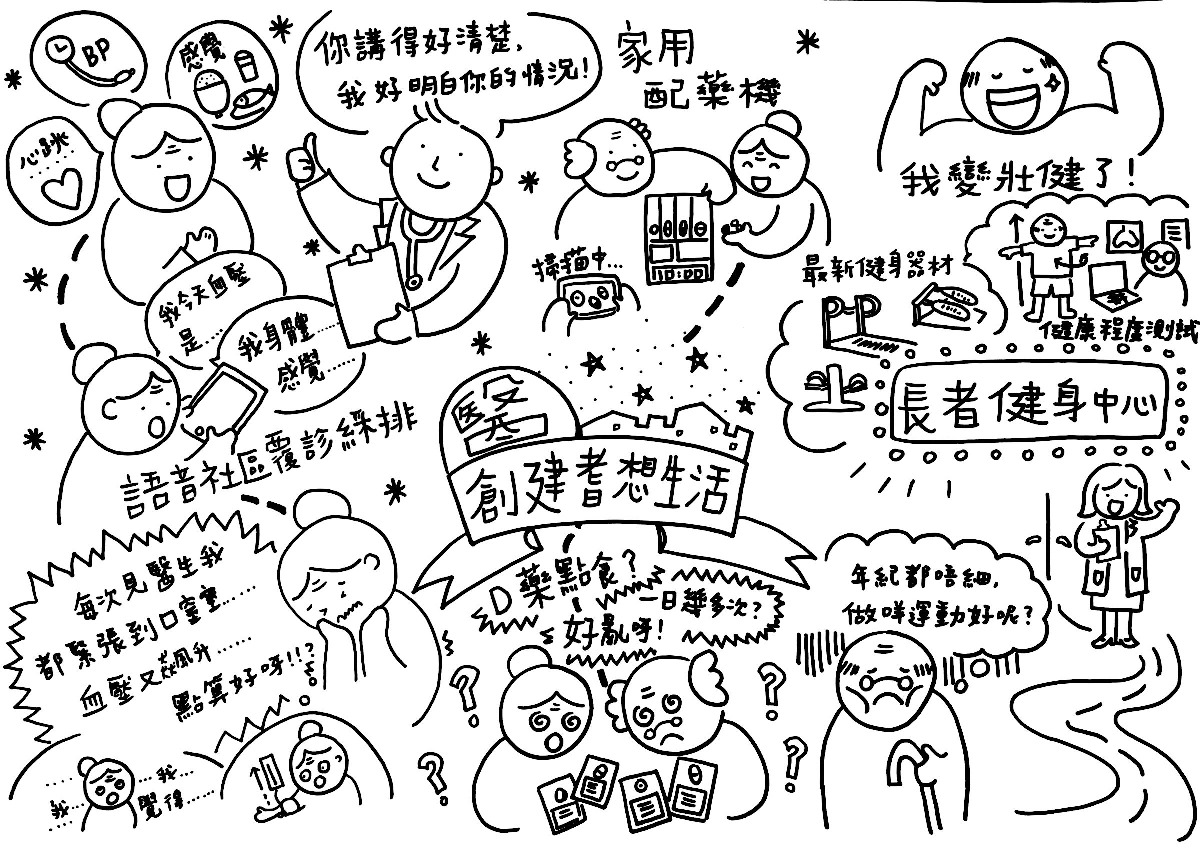 BP
感覺
心跳
......
你講得好清楚,
我好明白你的情況!
家用
配藥機
我變壯健了!
掃描中...
10:00
最新健身器材
健康程度測試
我今天血壓
是......
我身體......
感覺......
語音社區覆診綵排
醫
創建耆想生活
長者健身中心
每次見醫生我
都緊張到口窒窒......
血壓又飈升......
點算好呀!!?
......我......
我......覺得......
D藥點食?
一日幾多次?
好亂呀!
年紀都唔細,
做咩運動好呢?
? ? ? ?